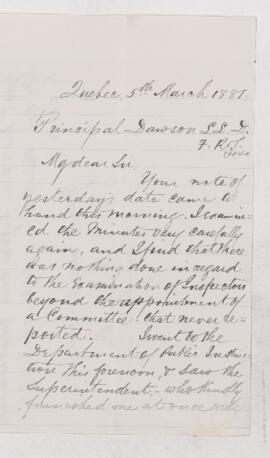 Quebec, 5th March 1881.
Principal Dawson LL. D.
F. R. S.
My dear Sir,
Your note of
yesterday's date came to
hand this morning. I examin-
ed the Minutes very carefully
again, and I find that there
was nothing done in regard
to the examination of Inspectors
beyond the appointment of
a Committee that never re-
ported. I went to the
Department of Public Instruc-
tion this forenoon, & saw the
Superintendent, who kindly
furnished me at once with